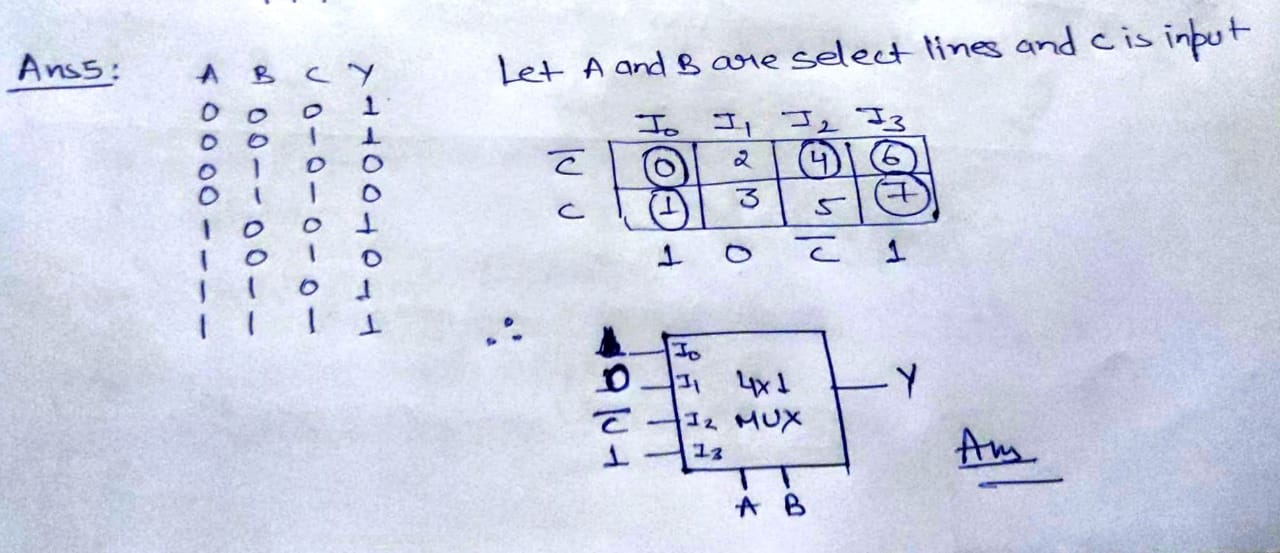 Ans5:
A B C Y
0 0 0 1
0 0 1 1
0 1 0 0
0 1 1 0
1 0 0 1
1 0 1 0
1 1 0 1
1 1 1 1
Let A and B are select lines and C is input
I0 I1 I2 I3
C̅ 0 2 4 6
C 1 3 5 7
1 0 C̅ 1
∴
I0
0 I1 4x1 Y
C̅ I2 MUX
1 I3
A B
Ans